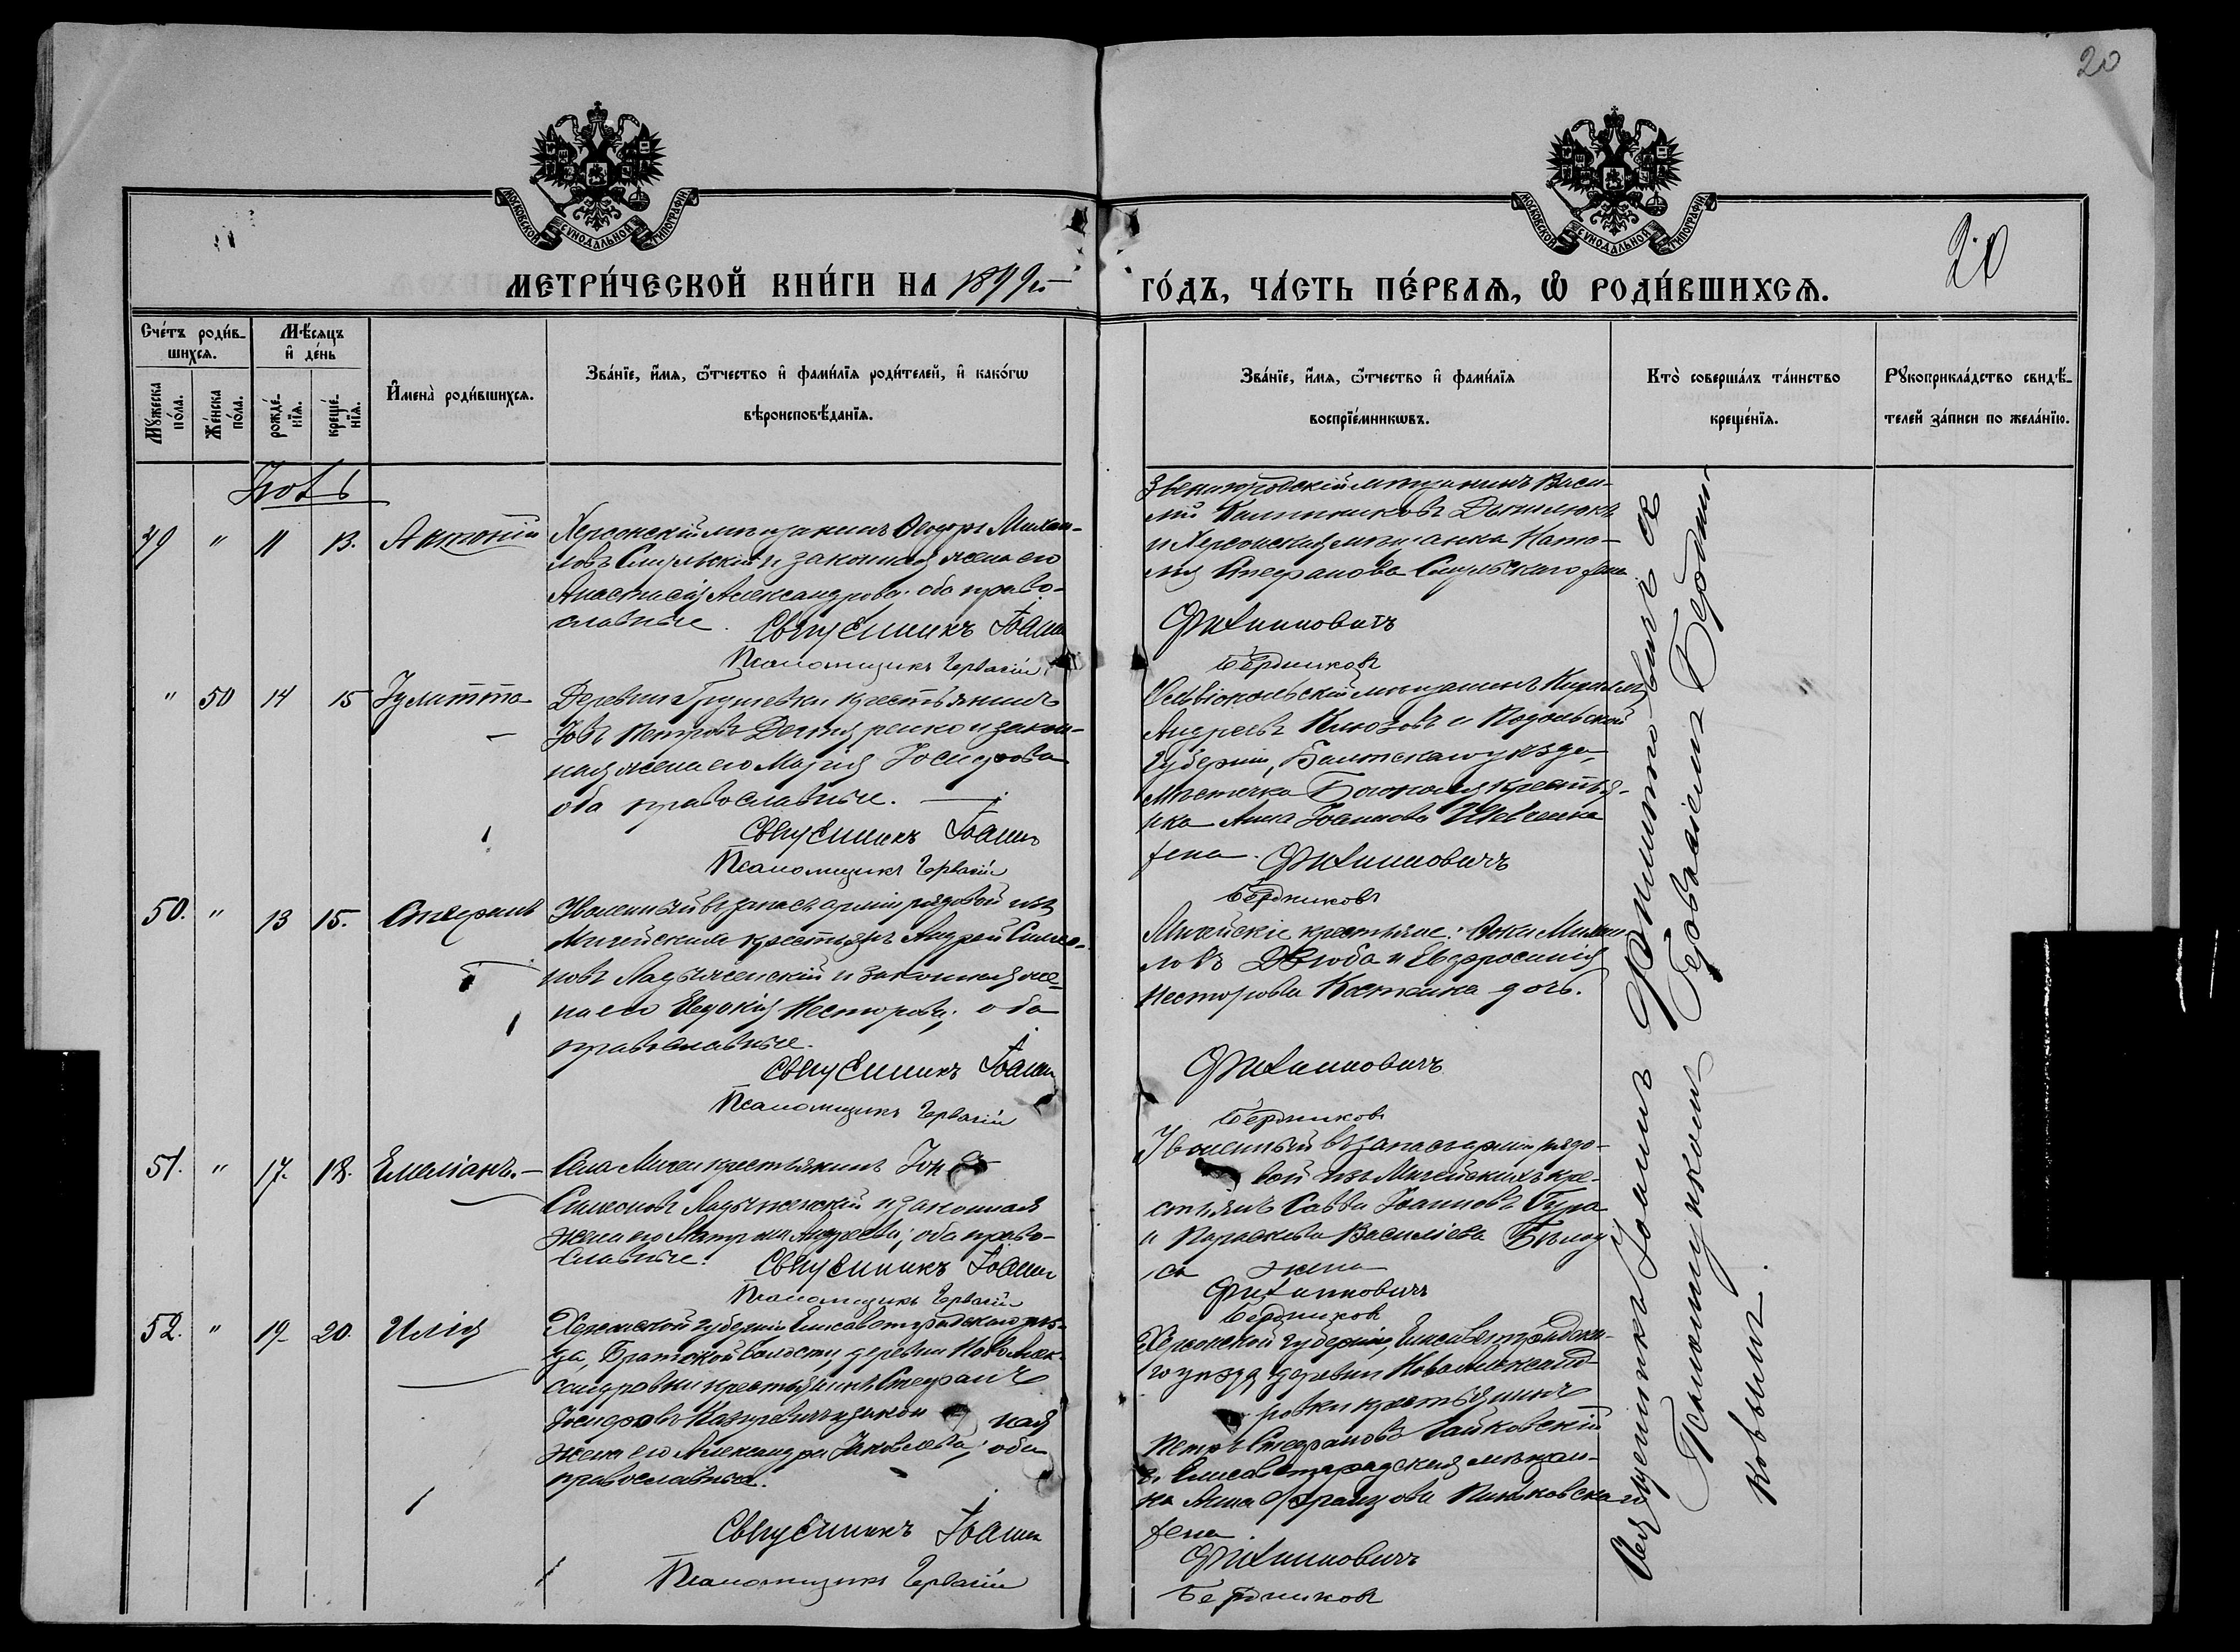 20
МОСКОВСКОЙ СУНОДАЛЬНОЙ ТИПОГРАФІИ
МОСКОВСКОЙ СУНОДАЛЬНОЙ ТИПОГРАФІИ
МЕТРИ́ЧЕСКОЙ КНИ́ГИ НА 1899й
ГО́ДЪ, ЧА́СТЬ ПЕ́РВАѦ, Ѡ РОДИ́ВШИХСѦ.
20
Сче́тъ роди́в-
шихсѧ.
Мꙋ́жеска по́ла.
Же́нска по́ла.
Мѣ́сѧцъ
и҆ де́нь
рожде́-
нїѧ.
креще́-
нїѧ.
И҆мена̀ роди́вшихсѧ.
Зва́нїе, и҆́мѧ, ѻ҆́тчество и҆ фами́лїѧ роди́телей, и҆ како́гѡ
вѣроисповѣ́данїѧ.
Зва́нїе, и҆́мѧ, ѻ҆́тчество и҆ фами́лїѧ
воспрїе́мникѡвъ.
Кто̀ соверша́лъ та́инство
креще́нїѧ.
Рꙋкоприкла́дство свидѣ́-
телей за́писи по жела́нїю.
49 " 11 13. Антоній
Херсонскій мѣщанинъ Ѳеодоръ Михаи-
ловъ и законная жена его
Анастасія Александрова; оба право-
славные.
Священникъ Іоаннъ
Псаломщикъ Гервасій
Звенигородскій мѣщанинъ Васи-
лій
и Херсонская мѣщанка Ната-
лія Стефанова жена
Филипповичъ
Бердниковъ
" 50 14 15 Іулитта
Деревни Грушевки крестьянинъ
Іовъ Петровъ и закон-
ная жена его Марія Іосифова
оба православные.
Священникъ Іоаннъ
Псаломщикъ Гервасій
Ольвіопольскій мѣщанинъ Кириллъ
Андреевъ и Подольской
губерніи, Балтскаго уѣзда,
мѣстечка Богополя крестья-
нка Анна Іоаннова Шевченка
жена.
Филипповичъ
Бердниковъ
50. " 13 15. Стефанъ
Уволенный въ запасъ арміи рядовой изъ
Мигейскихъ крестьянъ Андрей Симео-
новъ Ладыженскій и законная же-
на его Евдокія Несторова; оба
православные.
Священникъ Іоаннъ
Псаломщикъ Гервасій
Мигейскіе крестьяне: Михаи-
ловъ Дзюба и Евфросинія
Несторова дочь.
Филипповичъ
Бердниковъ
51. " 17. 18. Емеліанъ.
Села Мигеи крестьянинъ
Симеоновъ Ладыженскій и законная
жена его Андреева; оба право-
славные.
Священникъ Іоаннъ
Псаломщикъ Гервасій
Уволенный въ запасъ арміи рядо-
вой изъ Мигейскихъ кре-
стьянъ Савва Іоанновъ Гура
и Параскева Василіева
жена
Филипповичъ
Бердниковъ
52. " 19 20. Илія
Херсонской губерніи Елисаветградскаго уѣз-
да, Братской волости, деревни Новоалек-
сандровки крестьянинъ Стефанъ
Іосифовъ и закон ная
жена его Александра Іаковлева; оба
православные.
Священникъ Іоаннъ
Псаломщикъ Гервасій
Херсонской губерніи, Елисаветградска-
го уѣзда деревни Новоалександ-
ровки крестьянинъ
Петръ Стефановъ
и Елисаветградская мѣщан-
ка Анна Францова
жена
Филипповичъ
Бердниковъ
Священникъ Іоаннъ Филипповичъ съ
Псаломщикомъ Гервасіемъ Бердни-
ковымъ.